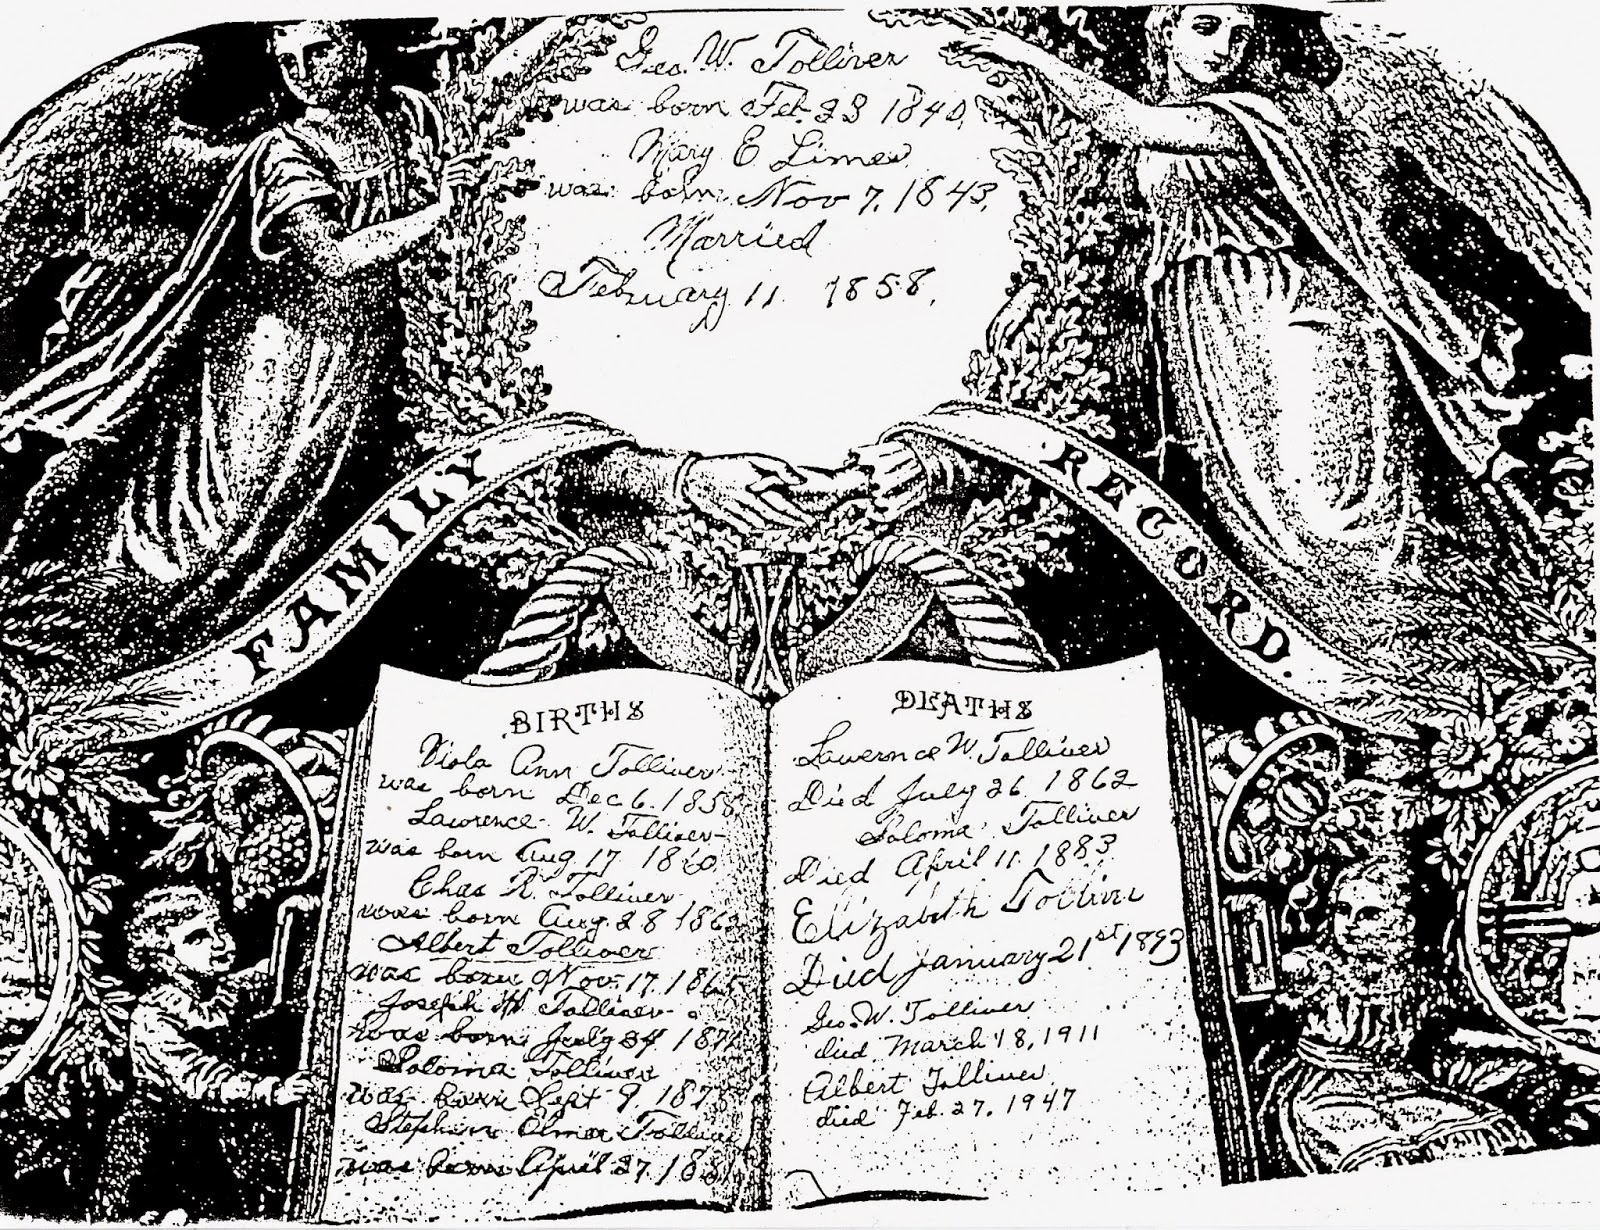 Geo. W. Tolliver
was born Feb. 23 1840,
Mary E Limes
was born Nov 7, 1843,
Married
February 11 1858,
FAMILY RECORD.
BIRTHS
Viola Ann Tolliver
was born Dec 6. 1858,
Lawrence W. Tolliver
was born Aug 17 1860,
Chas R. Tolliver
was born Aug. 28 186
Albert Tolliver
was born Nov. 17. 186
Joseph Tolliver
was born July 24 187
Saloma Tolliver
was born Sept 9 187
Stephen Elmer Tolliver
was born April 27 188
DEATHS
Lawernce W. Tolliver
Died July 26 1862
Saloma Tolliver
Died April 11 1883
Elizabeth Tolliver
Died January 21st 1893
Geo. W. Tolliver
died March 18, 1911
Albert Tolliver
died Feb. 27, 1947